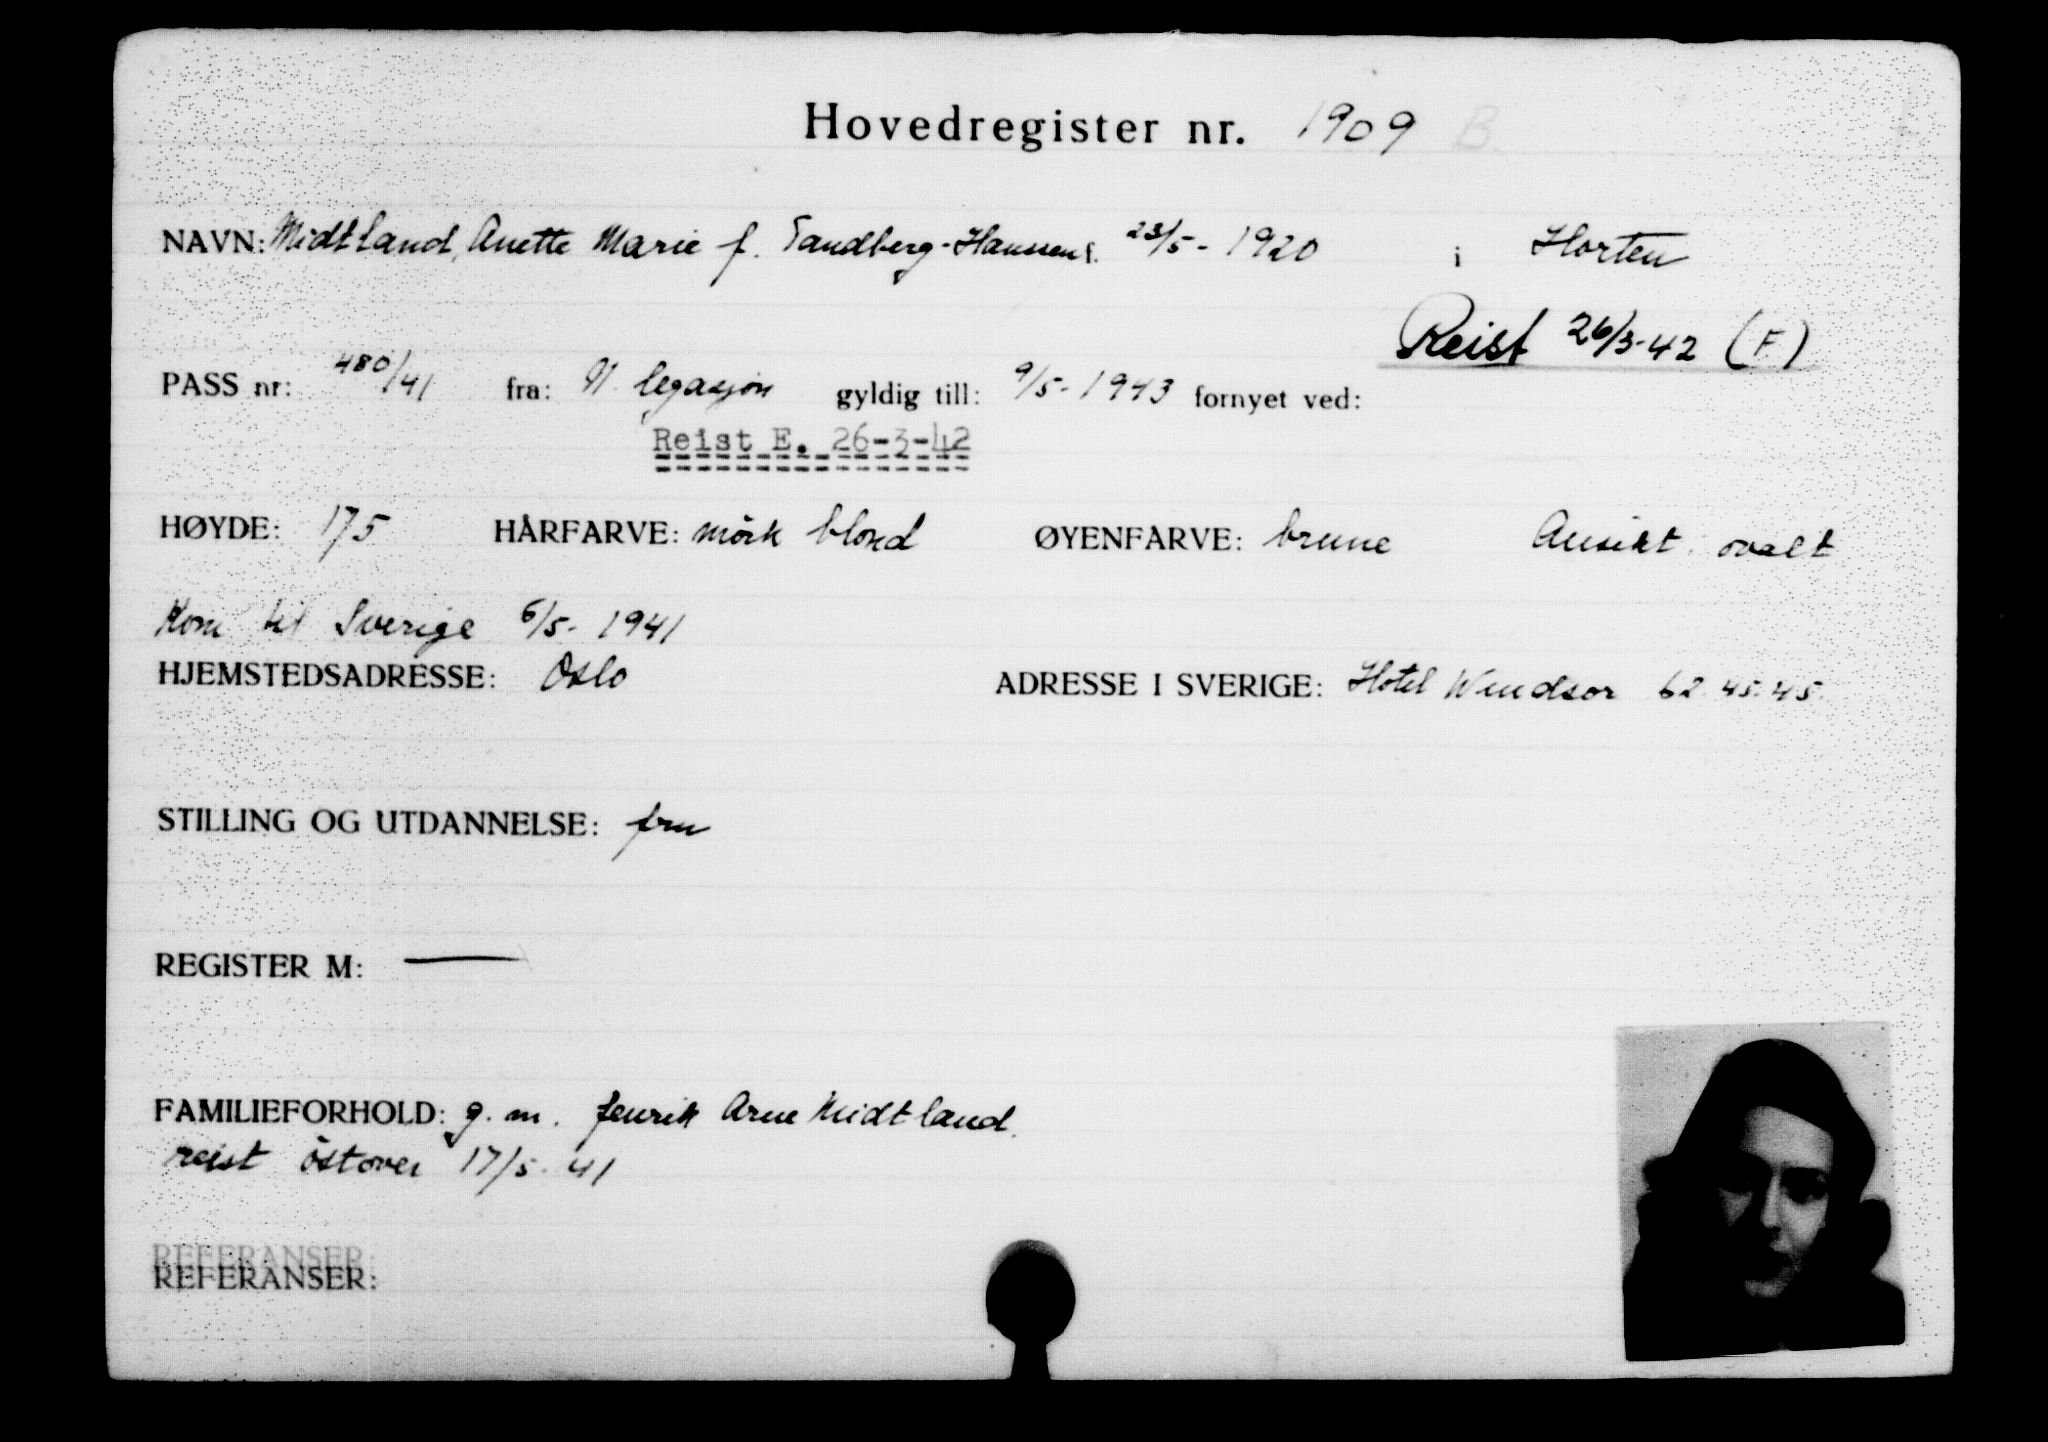 Hovedregister nr. 1909 B.
NAVN: Midtland, Anette Marie f. Sandberg-Hanssen f. 23/5-1920 i Horten
Reist 26/3-42 (F)
PASS nr: 480/41 fra: N. legasjon gyldig till: 9/5-1943 fornyet ved:
Reist E. 26-3-42
HØYDE: 175 HÅRFARVE: mörk blond ØYENFARVE: brune Ansikt: ovalt
Kom til Sverige 6/5-1941
HJEMSTEDSADRESSE: Oslo ADRESSE I SVERIGE: Hotel Windsor 62 45 45.
STILLING OG UTDANNELSE: fru
REGISTER M: —
FAMILIEFORHOLD: g. m. Henrik Arne Midtland.
reist östover 17/5-41
REFERANSER:
REFERANSER: